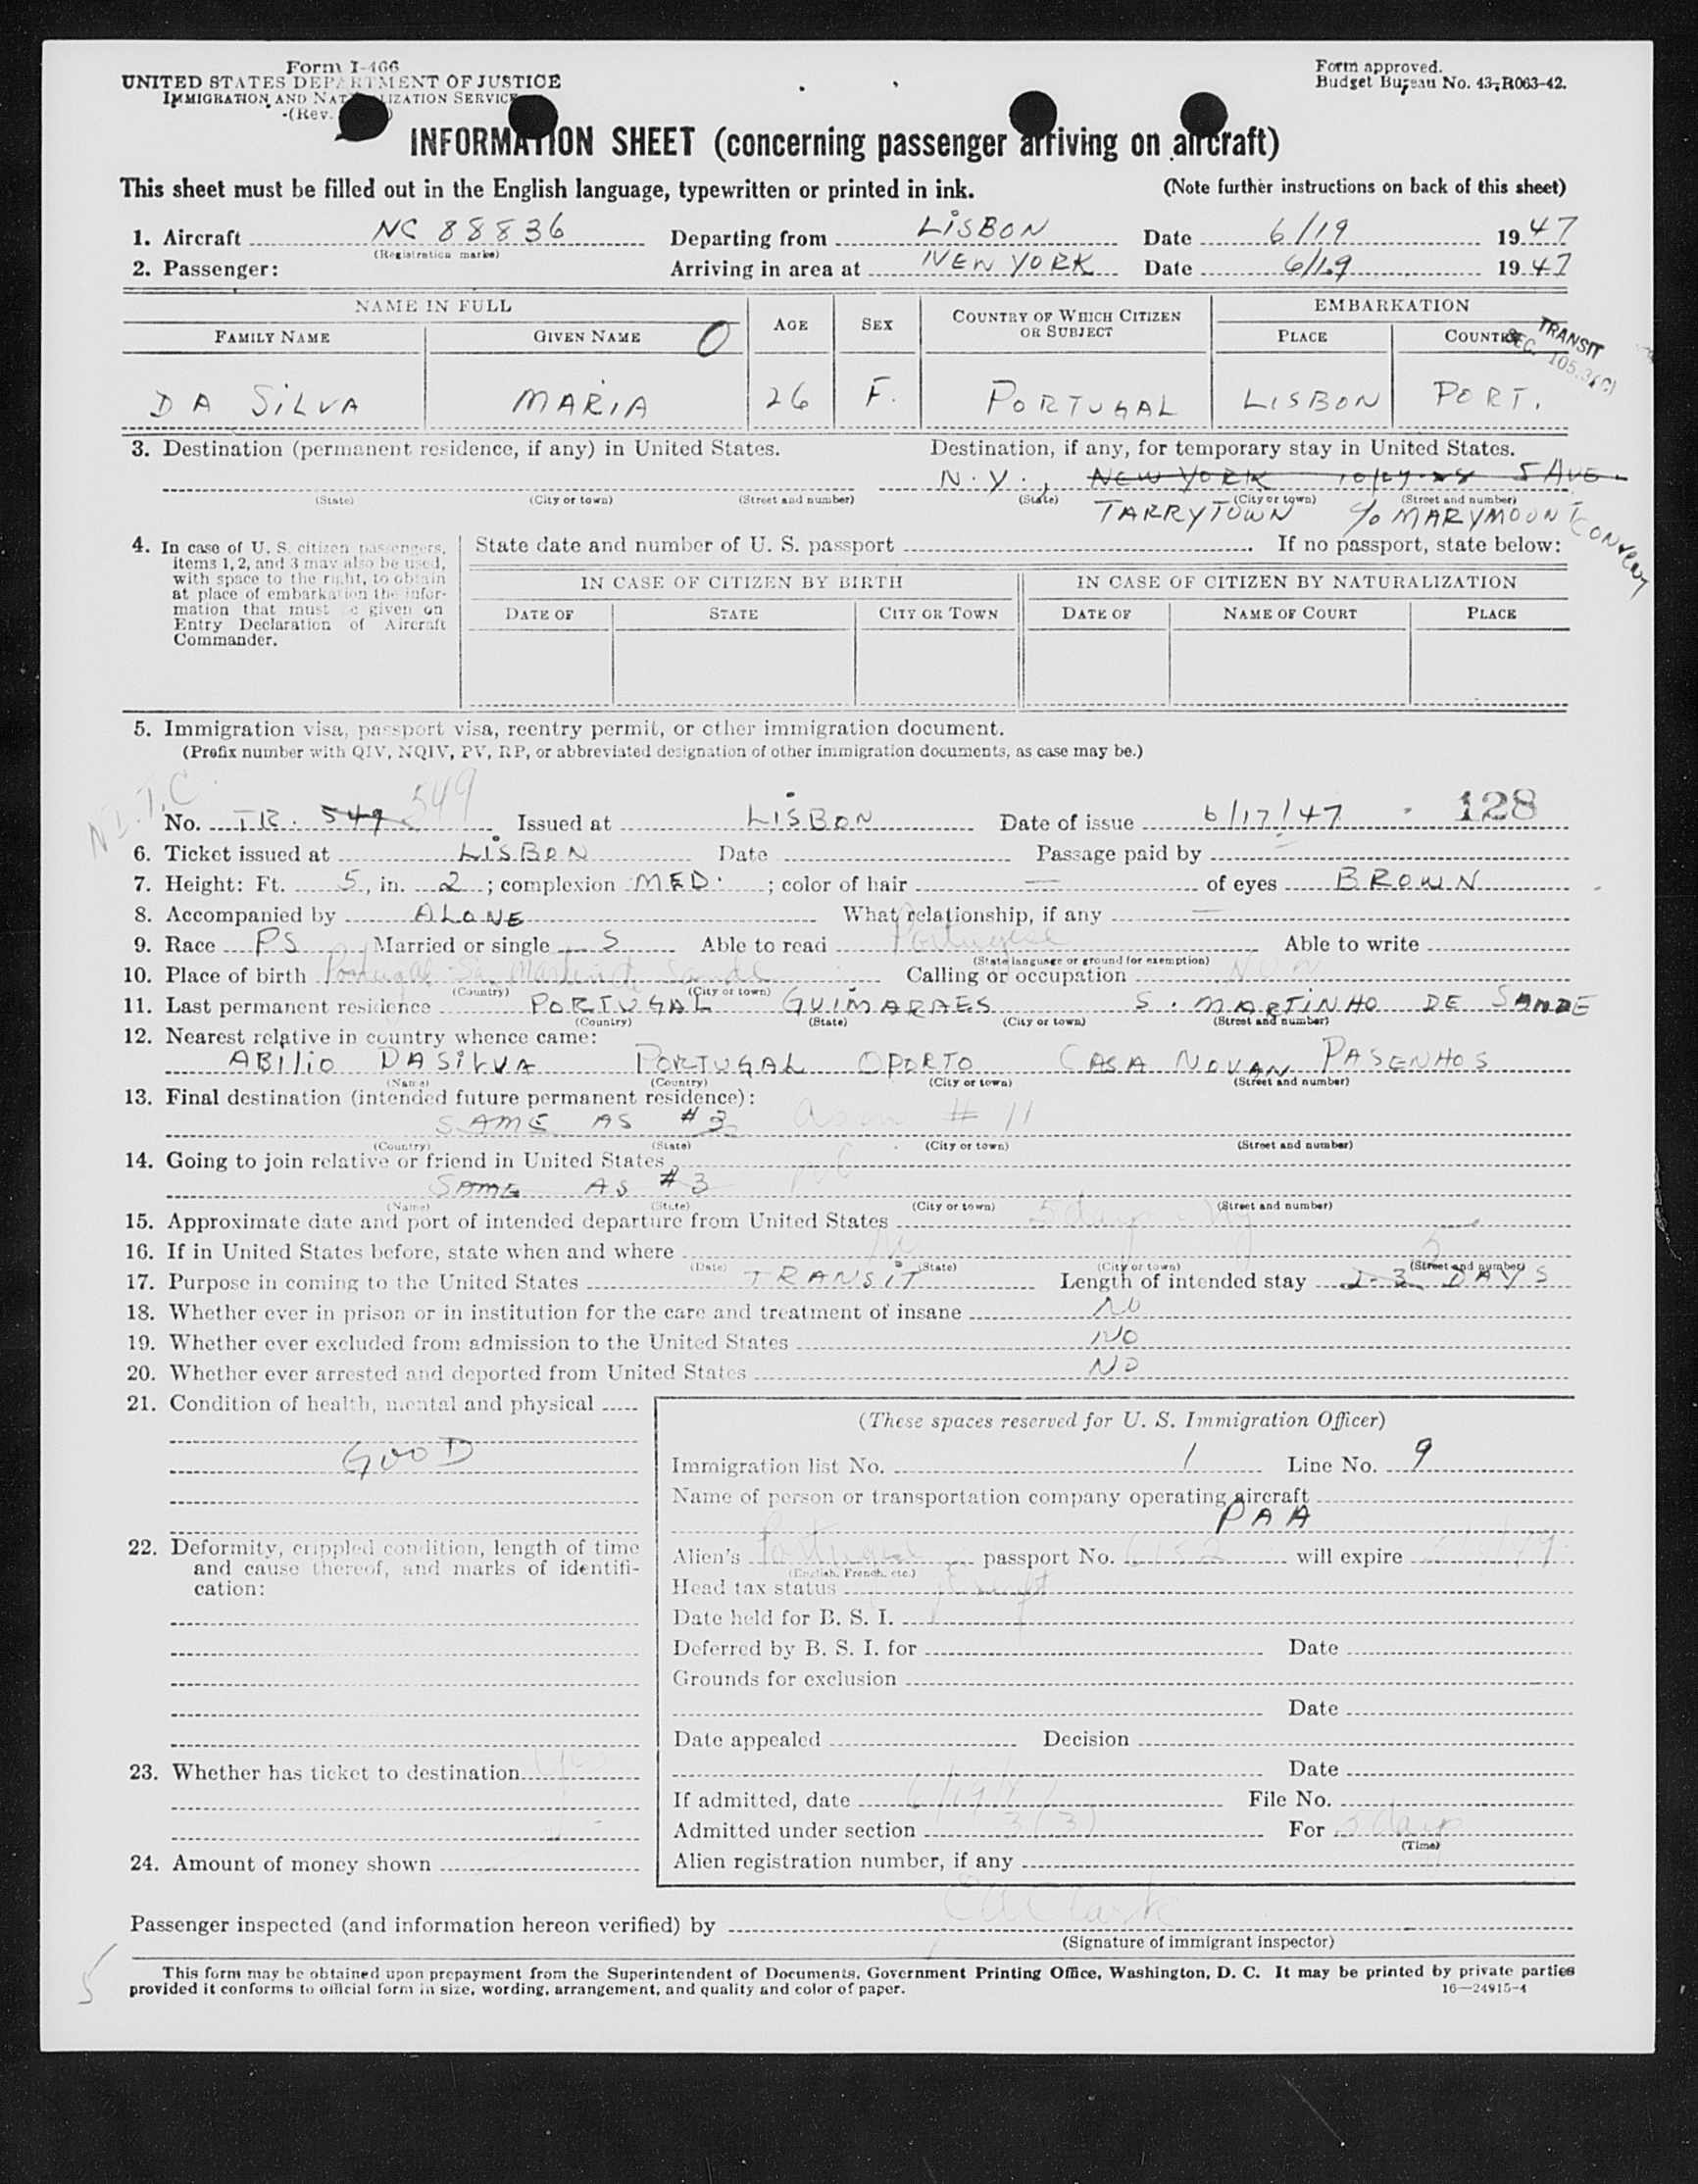 Form I-466
UNITED STATES DEPARTMENT OF JUSTICE
IMMIGRATION AND NATURALIZATION SERVICE
(Rev.
Form approved.
Budget Bureau No. 43-R063-42.
INFORMATION SHEET (concerning passenger arriving on aircraft)
This sheet must be filled out in the English language, typewritten or printed in ink. (Note further instructions on back of this sheet)
1. Aircraft NC 88836 Departing from LISBON Date 6/19 1947
(Registration marks)
2. Passenger: Arriving in area at NEW YORK Date 6/19 1947
NAME IN FULL AGE SEX COUNTRY OF WHICH CITIZEN OR SUBJECT EMBARKATION
FAMILY NAME GIVEN NAME O PLACE COUNTRY
TRANSIT
SEC. 105.3(C)
DA SILVA MARIA 26 F. PORTUGAL LISBON PORT.
3. Destination (permanent residence, if any) in United States. Destination, if any, for temporary stay in United States.
N.Y., NEW YORK 5 AVE.
(State) (City or town) (Street and number) (State) (City or town) (Street and number)
TARRYTOWN c/o MARYMOUNT CONVENT
4. In case of U. S. citizen passengers, items 1, 2, and 3 may also be used, with space to the right, to obtain at place of embarkation the information that must be given on Entry Declaration of Aircraft Commander.
State date and number of U. S. passport If no passport, state below:
IN CASE OF CITIZEN BY BIRTH IN CASE OF CITIZEN BY NATURALIZATION
DATE OF STATE CITY OR TOWN DATE OF NAME OF COURT PLACE
5. Immigration visa, passport visa, reentry permit, or other immigration document.
(Prefix number with QIV, NQIV, PV, RP, or abbreviated designation of other immigration documents, as case may be.)
549
128
No. TR. 549 Issued at LISBON Date of issue 6/17/47
6. Ticket issued at LISBON Date Passage paid by —
7. Height: Ft. 5, in. 2; complexion MED.; color of hair — of eyes BROWN
8. Accompanied by ALONE What relationship, if any —
9. Race PS Married or single S Able to read Portuguese Able to write
(State language or ground for exemption)
10. Place of birth Portugal Calling or occupation Nun
(Country) (City or town)
11. Last permanent residence PORTUGAL GUIMARAES S. MARTINHO DE SANDE
(Country) (State) (City or town) (Street and number)
12. Nearest relative in country whence came:
ABILIO DASILVA PORTUGAL OPORTO CASA NOVAN PASENHOS
(Name) (Country) (City or town) (Street and number)
13. Final destination (intended future permanent residence):
SAME AS #3 as in #11
(Country) (State) (City or town) (Street and number)
14. Going to join relative or friend in United States
SAME AS #3
(Name) (State) (City or town) (Street and number)
15. Approximate date and port of intended departure from United States 5 days NY
16. If in United States before, state when and where No
(Date) (State) (City or town) (Street and number)
5
17. Purpose in coming to the United States TRANSIT Length of intended stay 2-3 DAYS
18. Whether ever in prison or in institution for the care and treatment of insane NO
19. Whether ever excluded from admission to the United States NO
20. Whether ever arrested and deported from United States NO
21. Condition of health, mental and physical
GOOD
22. Deformity, crippled condition, length of time and cause thereof, and marks of identification:
23. Whether has ticket to destination yes
24. Amount of money shown
(These spaces reserved for U. S. Immigration Officer)
Immigration list No. 1 Line No. 9
Name of person or transportation company operating aircraft
PAA
Alien's Portuguese passport No. will expire
(English, French, etc.)
Head tax status exempt
Date held for B. S. I.
Deferred by B. S. I. for Date
Grounds for exclusion
Date
Date appealed Decision
Date
If admitted, date 6/19/47 File No.
Admitted under section 3(3) For 5 days
(Time)
Alien registration number, if any
Passenger inspected (and information hereon verified) by
(Signature of immigrant inspector)
5
This form may be obtained upon prepayment from the Superintendent of Documents, Government Printing Office, Washington, D. C. It may be printed by private parties
provided it conforms to official form in size, wording, arrangement, and quality and color of paper.
16—24915-4